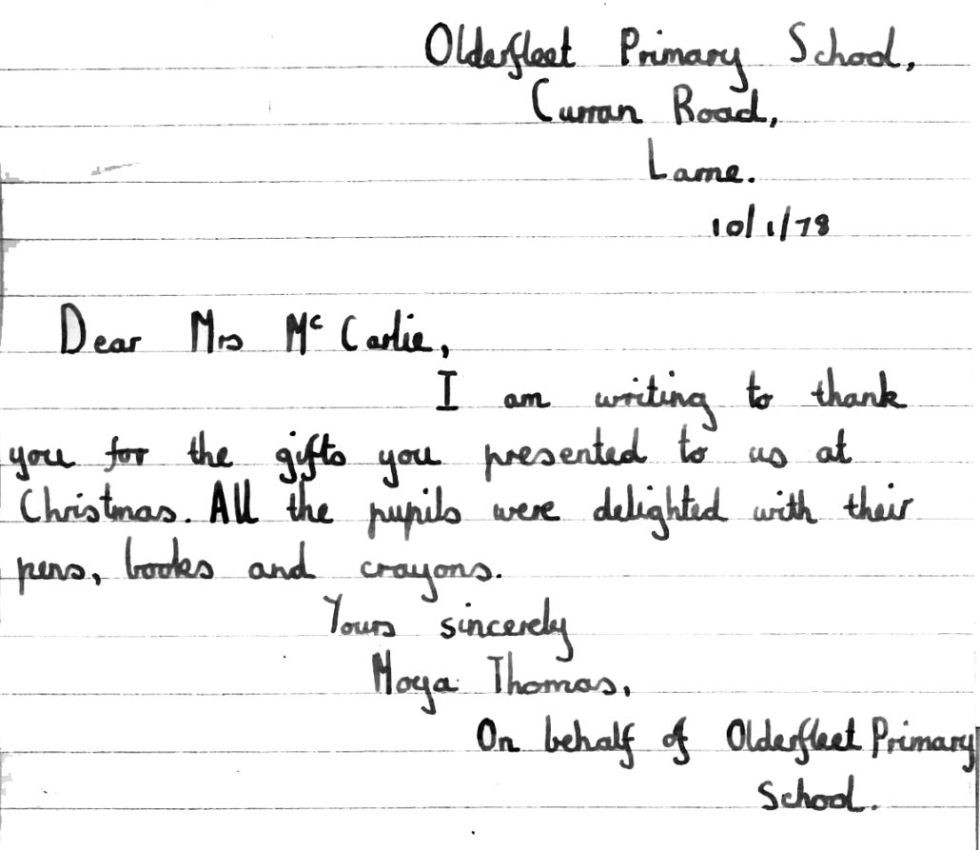 Olderfleet Primary School,
Curran Road,
Larne.
10/1/78
Dear Mrs Mc Carlie,
I am writing to thank
you for the gifts you presented to us at
Christmas. All the pupils were delighted with their
pens, books and crayons.
Yours sincerely
Moya Thomas,
On behalf of Olderfleet Primary
School.